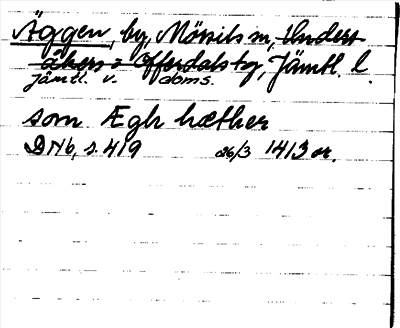 Äggen, by, Mörsils sn, Unders-
åkers o Offerdals tg, Jämtl. l.
jämtl. v. doms.
som Ægh hæther
DN 6, s. 419 26/3 1413 or.